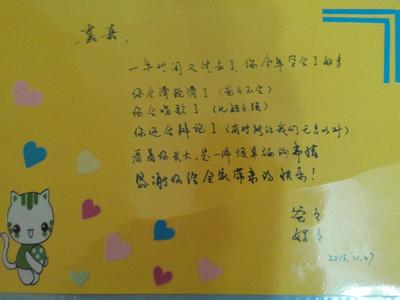 熹熹：
一年时间又过去了，你今年学会了好多
你会滑轮滑了（爸爸不会）
你会唱歌了（比妈妈强）
你还会辩论了（有时候让我们无言以对）
看着你长大，是一件很幸福的事情
感谢你给全家带来的快乐！
爸爸
妈妈
2016.11.27